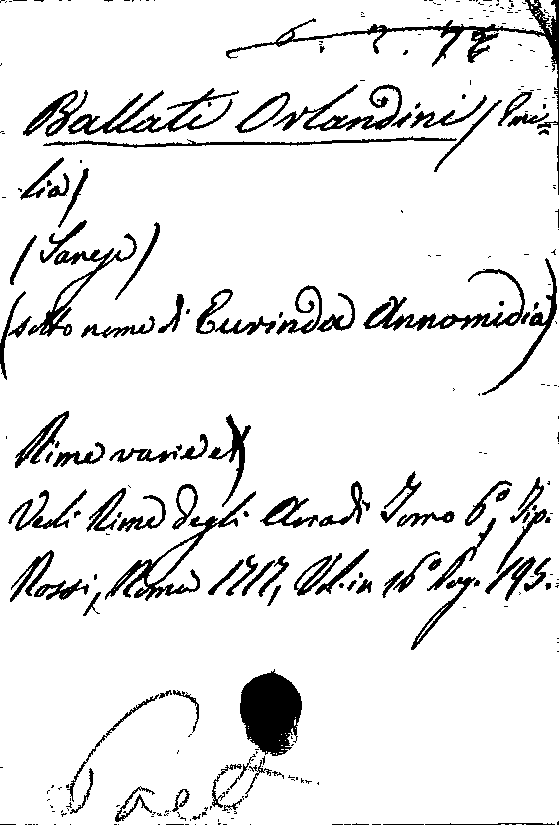 6. 2. 72
Ballati Orlandini (Emi=
lia)
(Sanese)
(sotto nome di Eurinda Annomidia)
Rime varie
Vedi Rime degli Arcadi Tomo 6º, Tip.
Rossi, Roma 1717, Vol. in 16º Pag. 195.